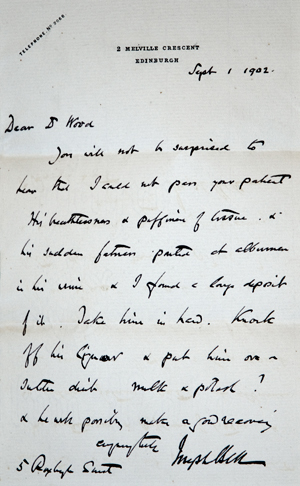 TELEPHONE Nº
2 MELVILLE CRESCENT
EDINBURGH
Sept 1 1902.
Dear Dr Wood
You will not be surprised to
hear that I could not pass your patient
His breathlessness & puffiness of tissue &
his sudden fatness pointed at albumen
in his urine & I found a large deposit
of it. Take him in hand. Knock
off his liquor & put him on a
diet milk & potash?
& he will possibly make a good recovery
Joseph Bell
5 Street